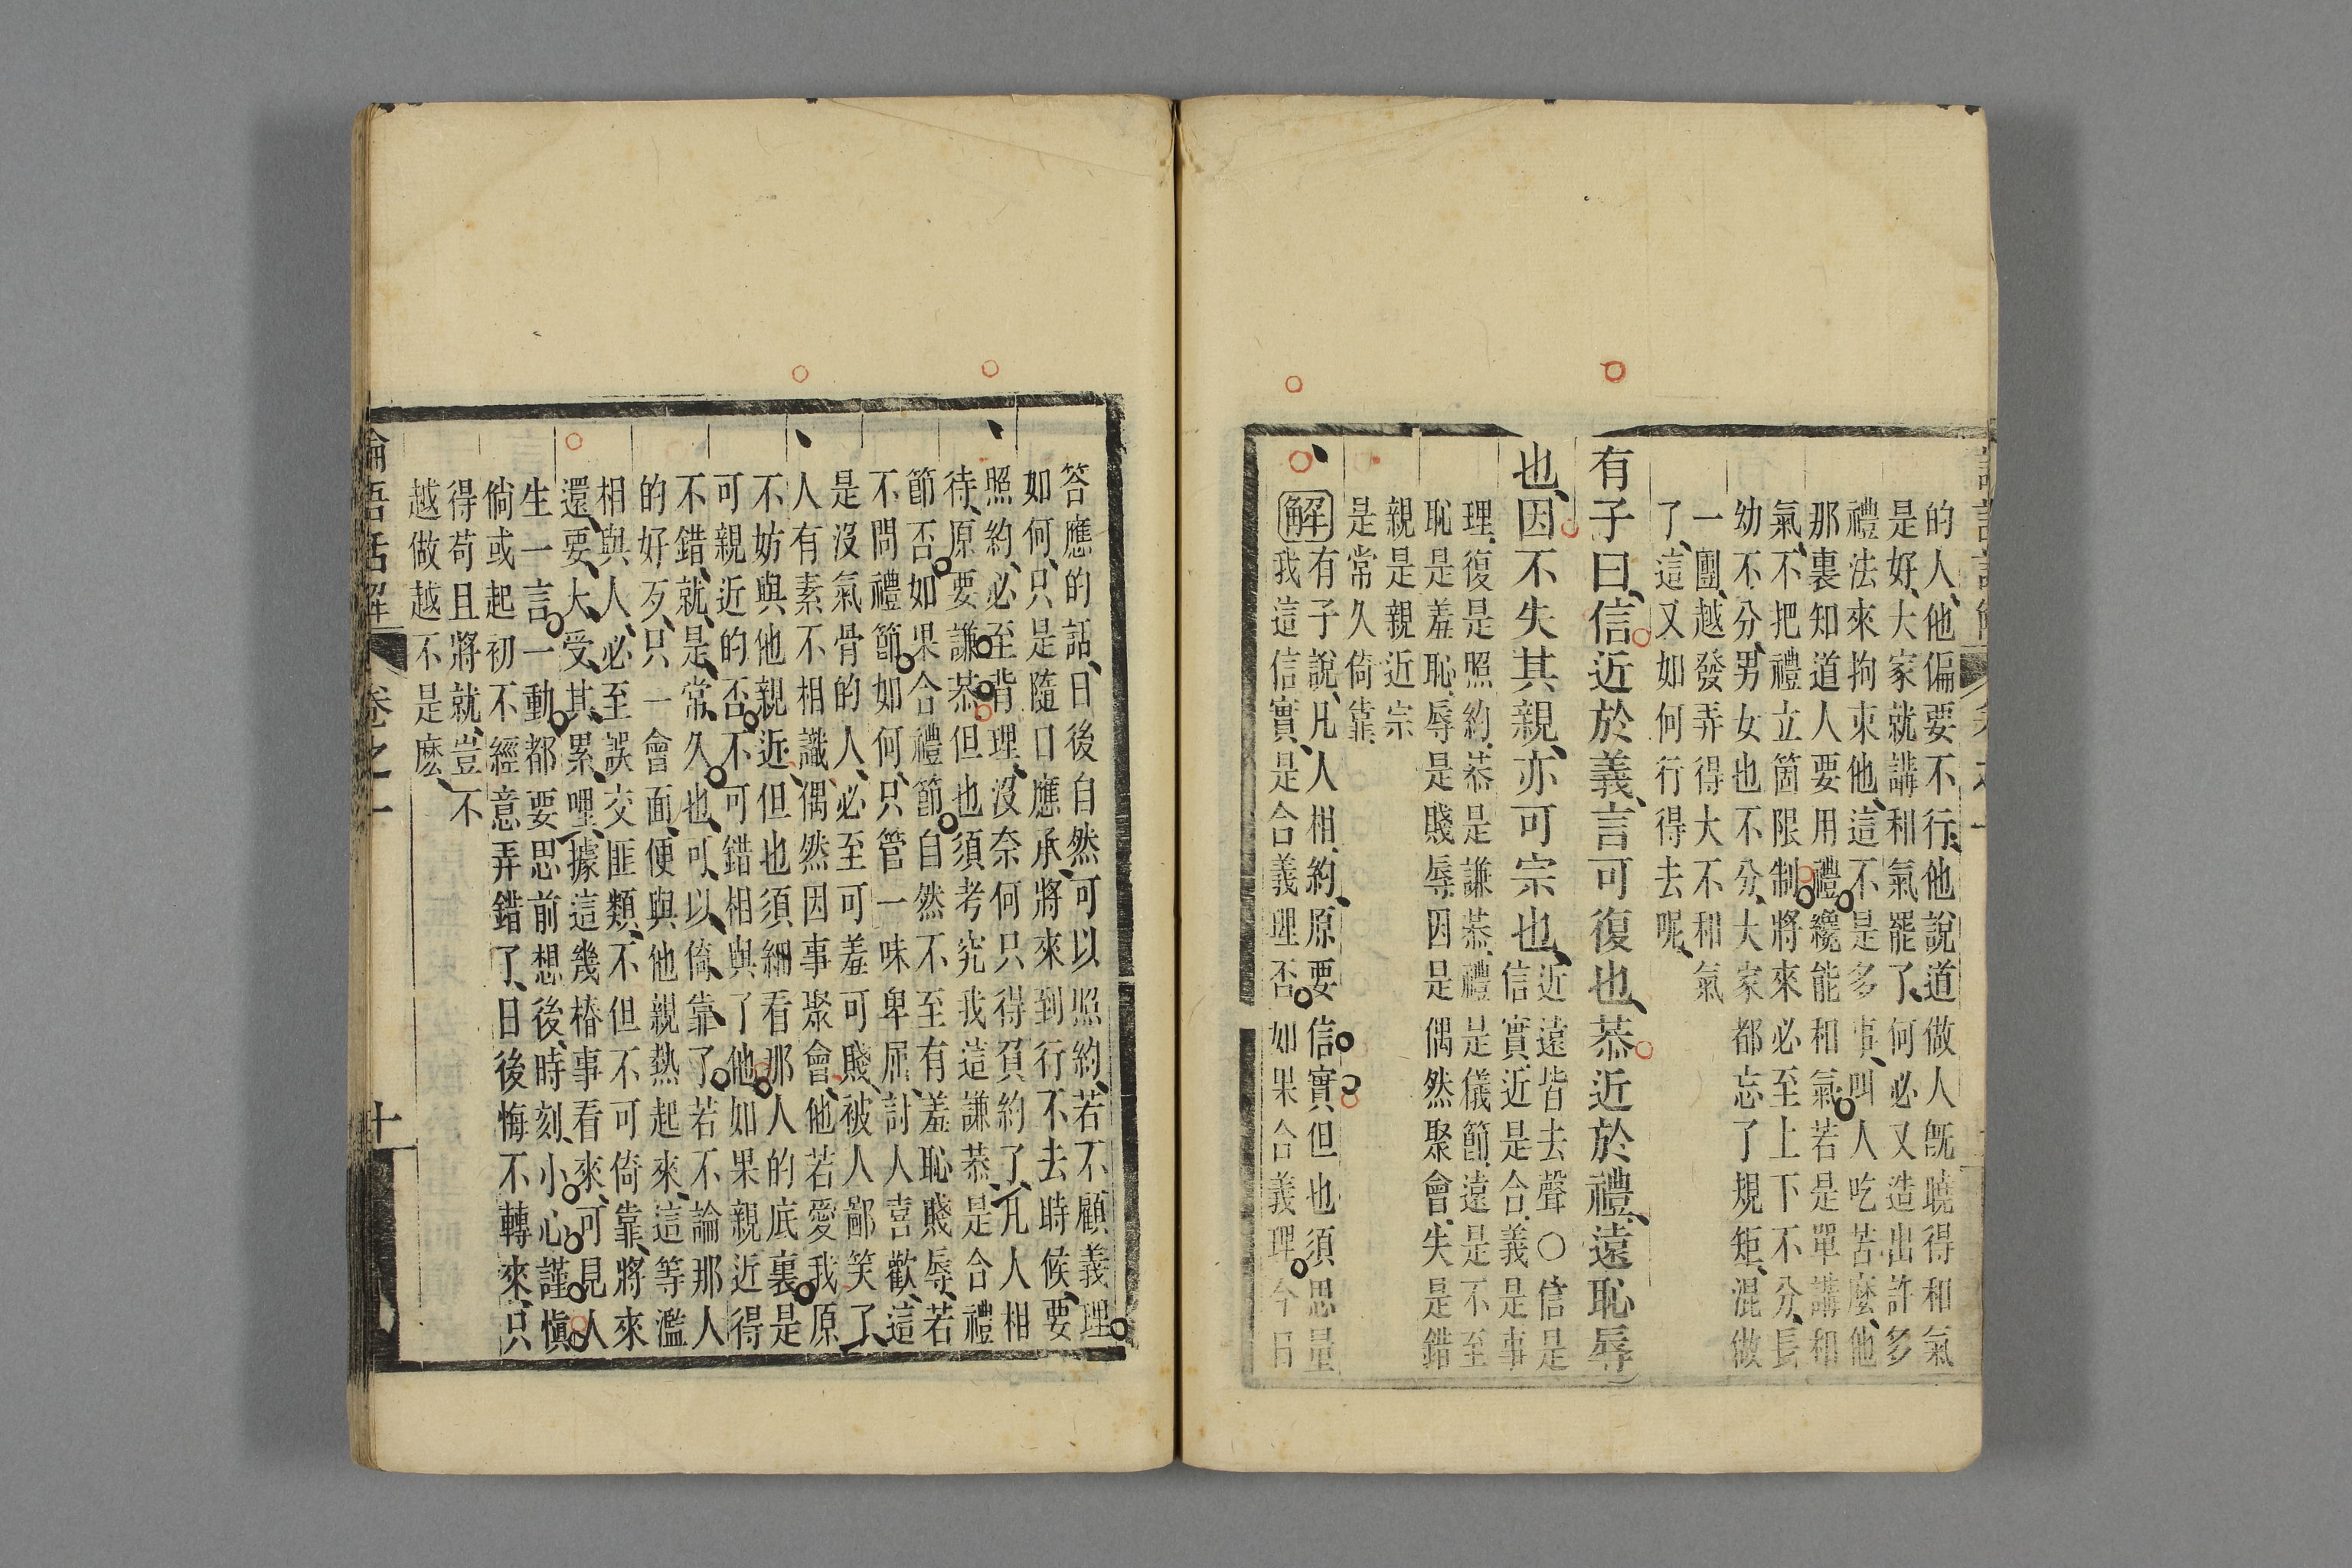 的人、他偏要不行、他說道做人旣曉得和氣
是好、大家就講和氣罷了、何必又造出許多
禮法來拘束他、這不是多事、叫人吃苦麼、他
那裏知道人要用禮纔能和氣若是單講和
氣、不把禮立箇限制將來必至上下不分、長
幼不分、男女也不分、大家都忘了規矩、混做
一團、越發弄得大不和氣
了、這又如何行得去呢、
有子曰、信近於義、言可復也、恭近於禮、遠恥辱
也、因不失其親、亦可宗也、
近遠皆去聲○信是
信實、近是合、義是事
理、復是照約、恭是謙恭、禮是儀節、遠是不至
恥是羞恥、辱是賤辱、因是偶然聚會、失是錯
親是親近宗
是常久倚靠、
解有子說、凡人相約、原要信實但也須思量
我這信實、是合義理否如果合義理今日
答應的話、日後自然、可以照約、若不顧義理
如何、只是隨口應承、將來到行不去時候、要
照約、必至背理、沒奈何只得負約了、凡人相
待、原要謙恭但也須考究我這謙恭、是合禮
節否如果合禮節自然不至有羞恥賤辱、若
不問禮節如何、只管一味卑屈、討人喜歡、這
是沒氣骨的人、必至可羞可賤、被人鄙笑了、
人有素不相識、偶然因事聚會、他若愛我原
不妨與他親近、但也須細看那人的底裏是
可親近的否不可錯相與了他如果親近得
不錯、就是、常久也、可以、倚、靠了若不論那人
的好歹、只一會面、便與他親熱起來、這等濫
相與人、必至誤交匪類、不但不可倚靠、將來
還、要、大、受、其、累、哩、據這幾樁事看來、可見人
生一言一動都要思前想後、時刻、小心謹愼
倘或起初不經意弄錯了、日後悔不轉來、只
得苟且將就、豈不
越做越不是麽、
論語話解 卷之一 十